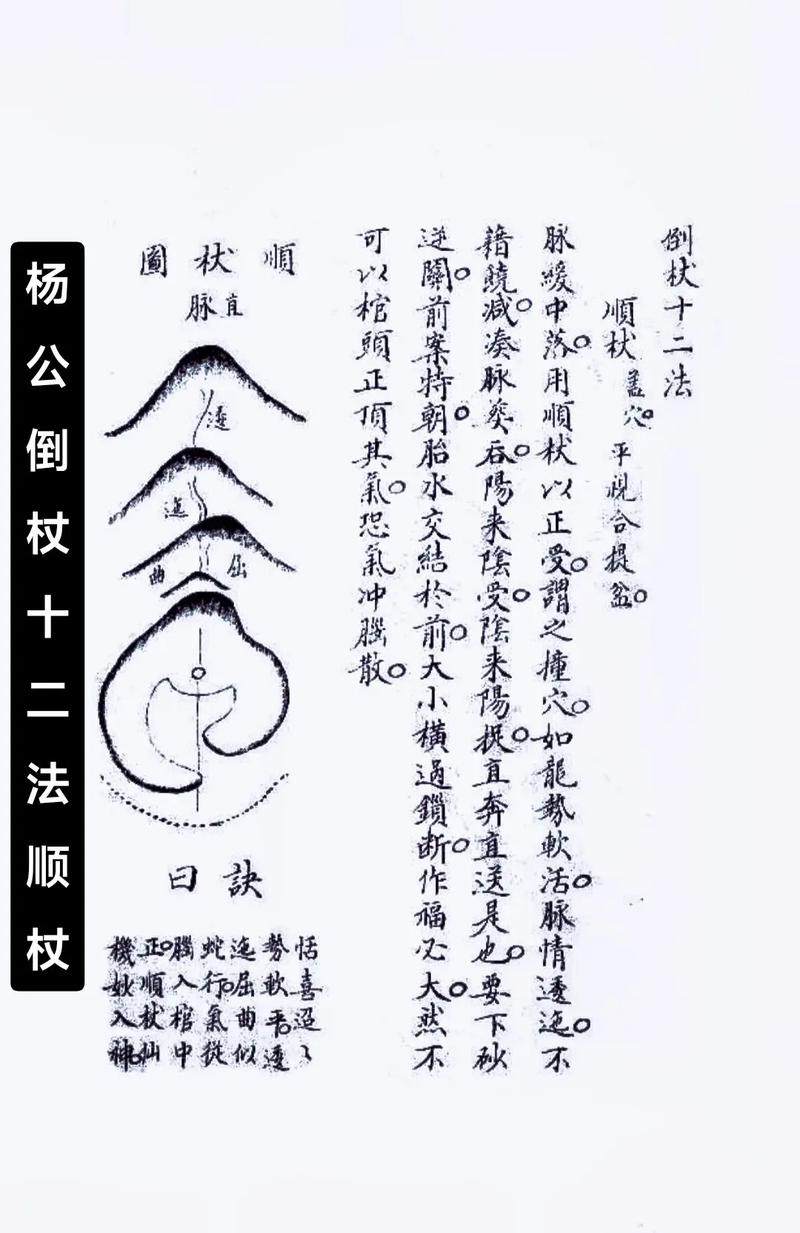 倒杖十二法
順杖 葢穴 平視合提盆
脉緩中落用順杖以正受謂之撞穴如龍勢軟活脉情逶迤不
藉饒減凑脉葵吞陽来陰受陰来陽提直奔直送是也要下砂
逆關前案特朝胎水交結於前大小橫過鎖断作福必大然不
可以棺頭正頂其氣恐氣冲腦散
順杖圖
直脉
逶
迤
屈
曲
訣曰
恬喜迢〻
勢軟平逶
迤屈曲似
蛇行氣従
腦入棺中
正順杖仙
機妙入神
杨公倒杖十二法顺杖